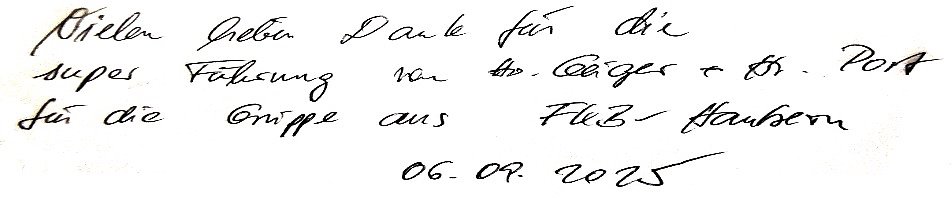 Vielen lieben Dank für die
super Führung von Hr. Geiger + Hr. Port
für die Gruppe aus
06.09.2025